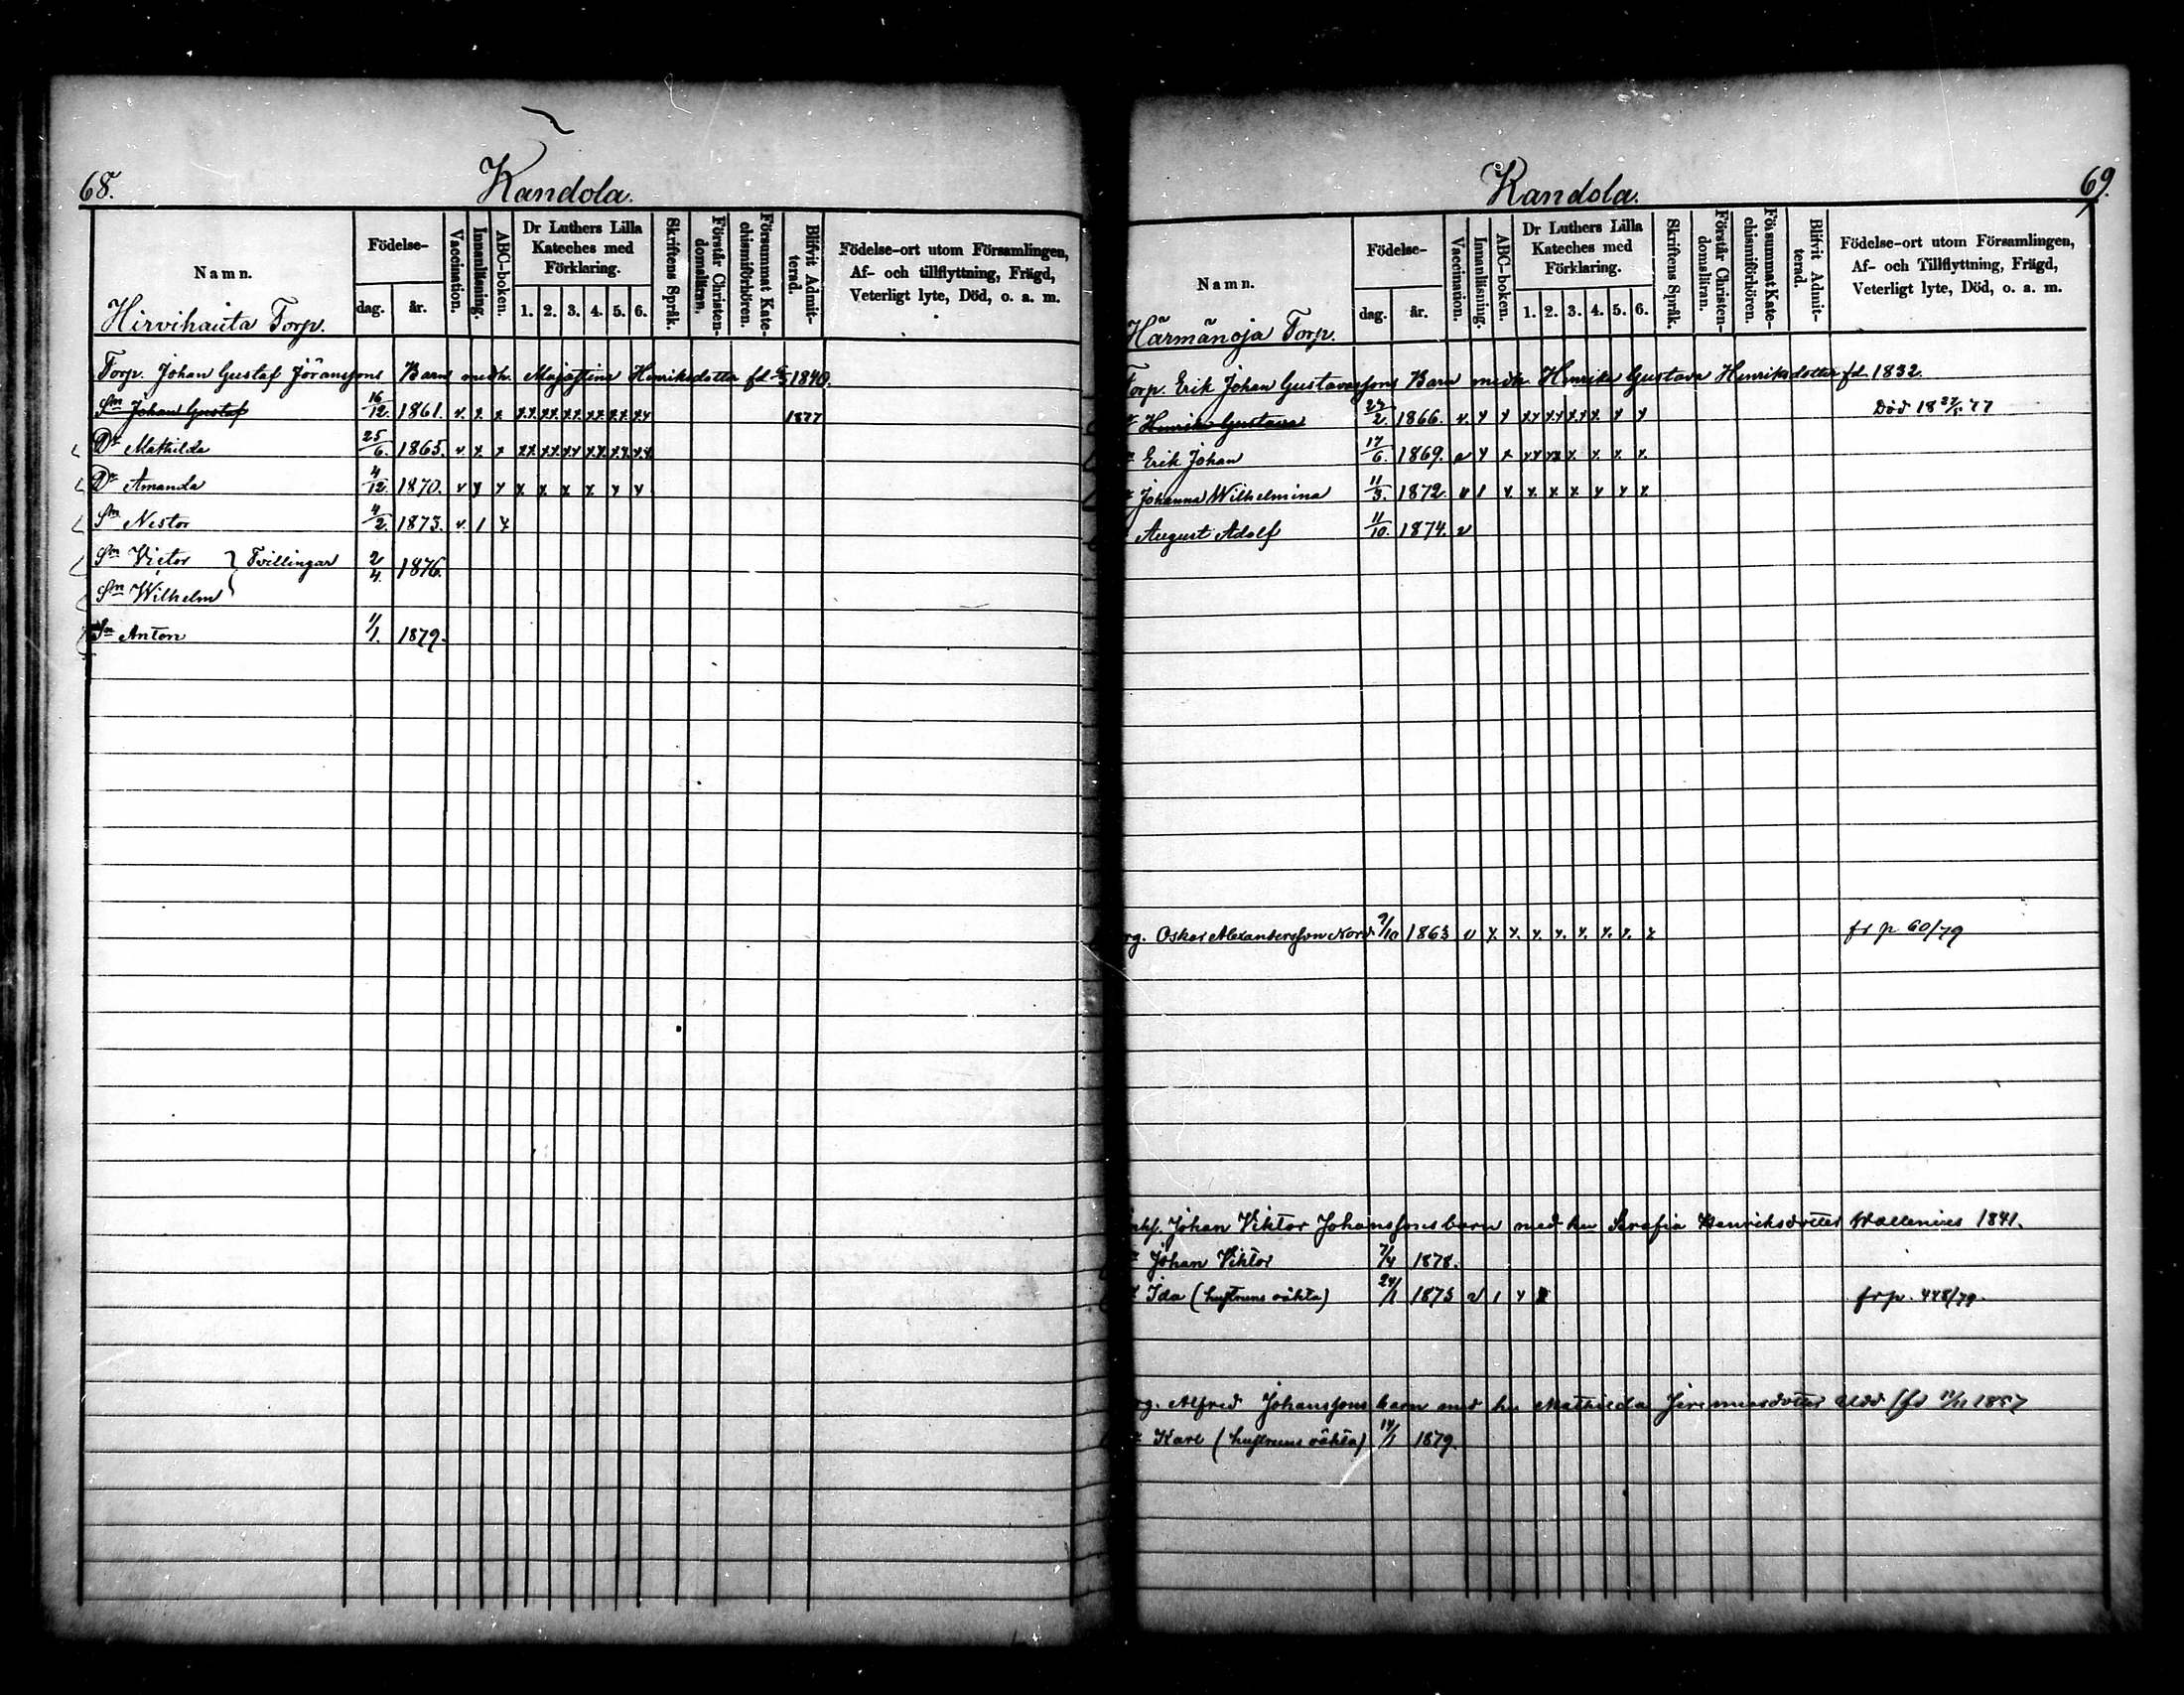 68.
Kandola.
Namn.
Födelse-
dag.
år.
Vaccination.
Innanläsning.
ABC-boken.
Dr Luthers Lilla
Kateches med
Förklaring.
1. 2. 3. 4. 5. 6.
Skriftens Språk.
Förstår Christen-
domsläran.
Försummat Kate-
chismiförhören.
Blifvit Admit-
terad.
Födelse-ort utom Församlingen,
Af- och tillflyttning, Frägd,
Veterligt lyte, Död, o. a. m.
Hirvihauta Torp.
Torp. Johan Gustaf Jöranssons Barn medh. Majastina Henriksdotter fd 1840.
Sn Johan Gustaf 16/12. 1861. v. x x xx xx xx xx xx xx 1877
Dr Mathilda 25/6. 1865. v x x xx xx xx xx xx xx
Dr Amanda 4/12. 1870. v y y x x x x x x
Sn Nestor 4/2. 1873. v. 1 x
Sn Victor } Tvillingar 2/4. 1876.
Sn Wilhelm
Sn Anton 11/1. 1879.
69.
Kandola.
Namn.
Födelse-
dag.
år.
Vaccination.
Innanläsning.
ABC-boken.
Dr Luthers Lilla
Kateches med
Förklaring.
1. 2. 3. 4. 5. 6.
Skriftens Språk.
Förstår Christen-
domsläran.
Försummat Kate-
chismiförhören.
Blifvit Admit-
terad.
Födelse-ort utom Församlingen,
Af- och Tillflyttning, Frägd,
Veterligt lyte, Död, o. a. m.
Härmänoja Torp.
Torp. Erik Johan Gustavssons Barn medh. Henrika Gustava Henriksdotter fd. 1832.
Henrika Gustava 27/2. 1866. v. x x xx xx xx x x x Död 18 77
Erik Johan 17/6. 1869. v x x xx xx x x x x
Johanna Wilhelmina 11/3. 1872. v 1 x x x x x x x
August Adolf 11/10. 1874. v
Oskar Alexandersson Nord. 9/10 1863 v x x x x x x x x fr p 60/79
Johan Viktor Johanssons barn med hu Serafia Henriksdotter Wallenius 1841.
Johan Viktor 7/4 1878.
Ida (hustruns oäkta) 24/1 1873 v 1 x fr p. 448/79.
Alfred Johanssons barn med hu Mathilda fd 1857
Karl (hustruns oäkta) 14/1 1879.